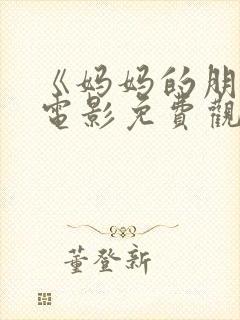 《妈妈的朋
電影免費觀
董登新